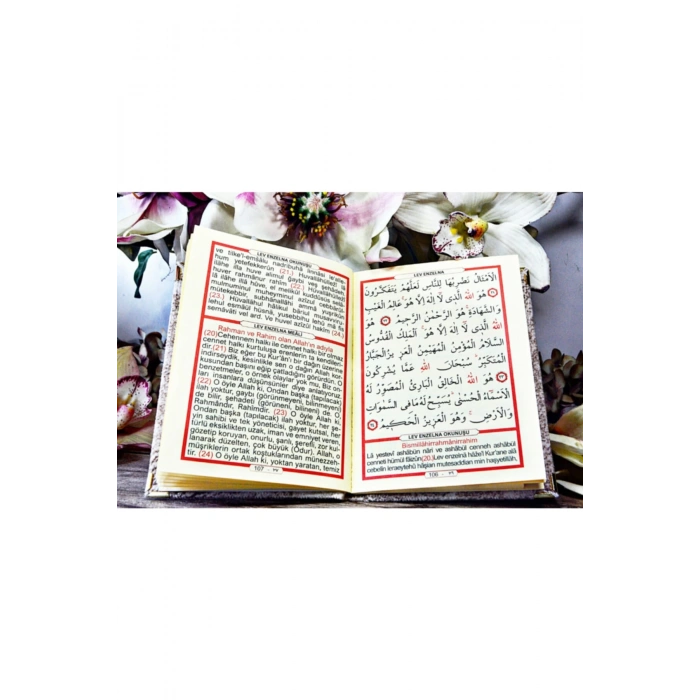 LEV ENZELNA
الْاَمْثَالُ نَضْرِبُهَا لِلنَّاسِ لَعَلَّهُمْ يَتَفَكَّرُونَ
هُوَ اللّٰهُ الَّذِى لَا اِلٰهَ اِلَّا هُوَ عَالِمُ الْغَيْبِ
وَالشَّهَادَةِ هُوَ الرَّحْمٰنُ الرَّحِيمُ هُوَ
اللّٰهُ الَّذِى لَا اِلٰهَ اِلَّا هُوَ اَلْمَلِكُ الْقُدُّوسُ
السَّلَامُ الْمُؤْمِنُ الْمُهَيْمِنُ الْعَزِيزُ الْجَبَّارُ
الْمُتَكَبِّرُ سُبْحَانَ اللّٰهِ عَمَّا يُشْرِكُونَ
هُوَ اللّٰهُ الْخَالِقُ الْبَارِئُ الْمُصَوِّرُ لَهُ
الْاَسْمَاءُ الْحُسْنٰى يُسَبِّحُ لَهُ مَا فِى السَّمٰوَاتِ
وَالْاَرْضِ وَهُوَ الْعَزِيزُ الْحَكِيمُ
LEV ENZELNA OKUNUŞU
Bismillâhirrahmânirrahîm
Lâ yestevî ashâbün nâri ve ashâbül cenneh ashâbül
cenneti hümül fâizûn(20.)Lev enzelnâ hâzel Kur'ane alâ
cebelin leraeytehû hâşian mutesaddian min haşyetillâh,
106
LEV ENZELNA OKUNUŞU
ve tilke'l-emsâlu nadribuhâ linnâsi le'alle-
hum yetefekkerûn (21.) Hüvallâhüllezî lâ
ilâhe illa huve alimul gaybi veş şehâdeh,
huver rahmânur rahîm (22.) Hüvallâhüllezî
lâ ilâhe illâ hüve, el melikül kuddûsüs selâ-
mulmuminul muheyminul azîzul cebbârul-
mütekebbir, subhânallâhi ammâ yuşrikûn
(23.) Hüvallâhul hâlikul bâriul musavviru
lehul esmâul hüsnâ, yusebbihu lehû mâ fis
semâvâti vel ard. Ve huvel azîzül hakîm (24.)
LEV ENZELNA MEÂLİ
Rahman ve Rahim olan Allah'ın adıyla
(20)Cehennem halkı ile cennet halkı bir olmaz
cennet halkı kurtuluşa erenlerin ta kendileri-
dir.(21) Biz eğer bu Kur'ân'ı bir dağın üzerine
indirseydik, kesinlikle sen o dağın Allah kor-
kusundan başını eğip çatladığını görürdün. O
benzetmeler, o örnek olaylar yok mu, Biz on-
ları insanlara düşünsünler diye anlatıyoruz.
(22) O öyle Allah ki, Ondan başka (tapılacak)
ilah yoktur, gaybı (görünmeyeni, bilinmeyeni)
de bilir, şehadeti (görüneni, bilineni) de. O,
Rahmândır, Rahîmdir. (23) O öyle Allah ki,
Ondan başka (tapılacak) ilah yoktur, her şe-
yin sahibi ve tek yöneticisi, gayet kutsal, her
türlü eksiklikten uzak, iman ve emniyet veren,
gözetip koruyan, onurlu, şanlı, şerefli, zor kul-
lanarak düzelten, çok büyük (Odur). Allah,
müşriklerin ortak koştuklarından münezzeh-
tir. (24) O öyle Allah ki, yoktan yaratan, temiz
107